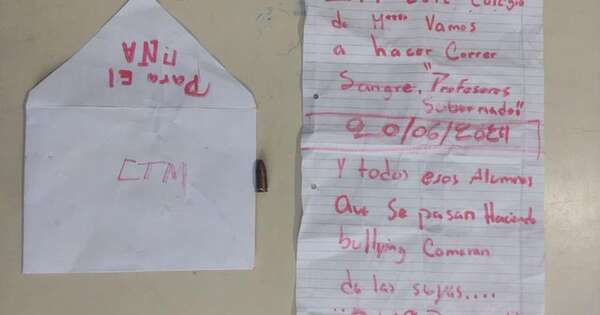 Para El
CTM
Este Colegio
de M**** Vamos
a hacer Correr
Sangre, "Profesores
Subornados"
20/06/2024
Y todos esos Alumnos
Que Se pasan Haciendo
bullying Comeran
de las suyas....